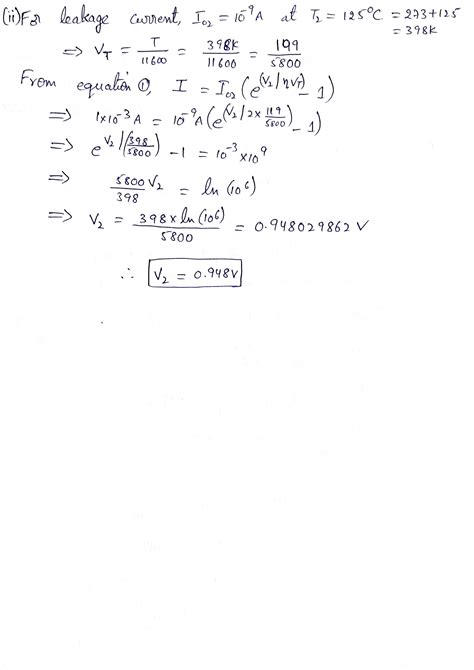 (ii) For leakage current, I₀₂ = 10⁻⁹A at T₂ = 125°C = 273+125
= 398K
⇒ V_T = T/11600 = 398K/11600 = 199/5800
From equation ①, I = I₀₂ (e^(V₂/ηV_T) - 1)
⇒ 1×10⁻³ A = 10⁻⁹A (e^(V₂/2×119/5800) - 1)
⇒ e^(V₂/(398/5800)) - 1 = 10⁻³×10⁹
⇒ 5800/398 V₂ = ln (10⁶)
⇒ V₂ = 398×ln(10⁶)/5800 = 0.948029862 V
∴ V₂ = 0.948V